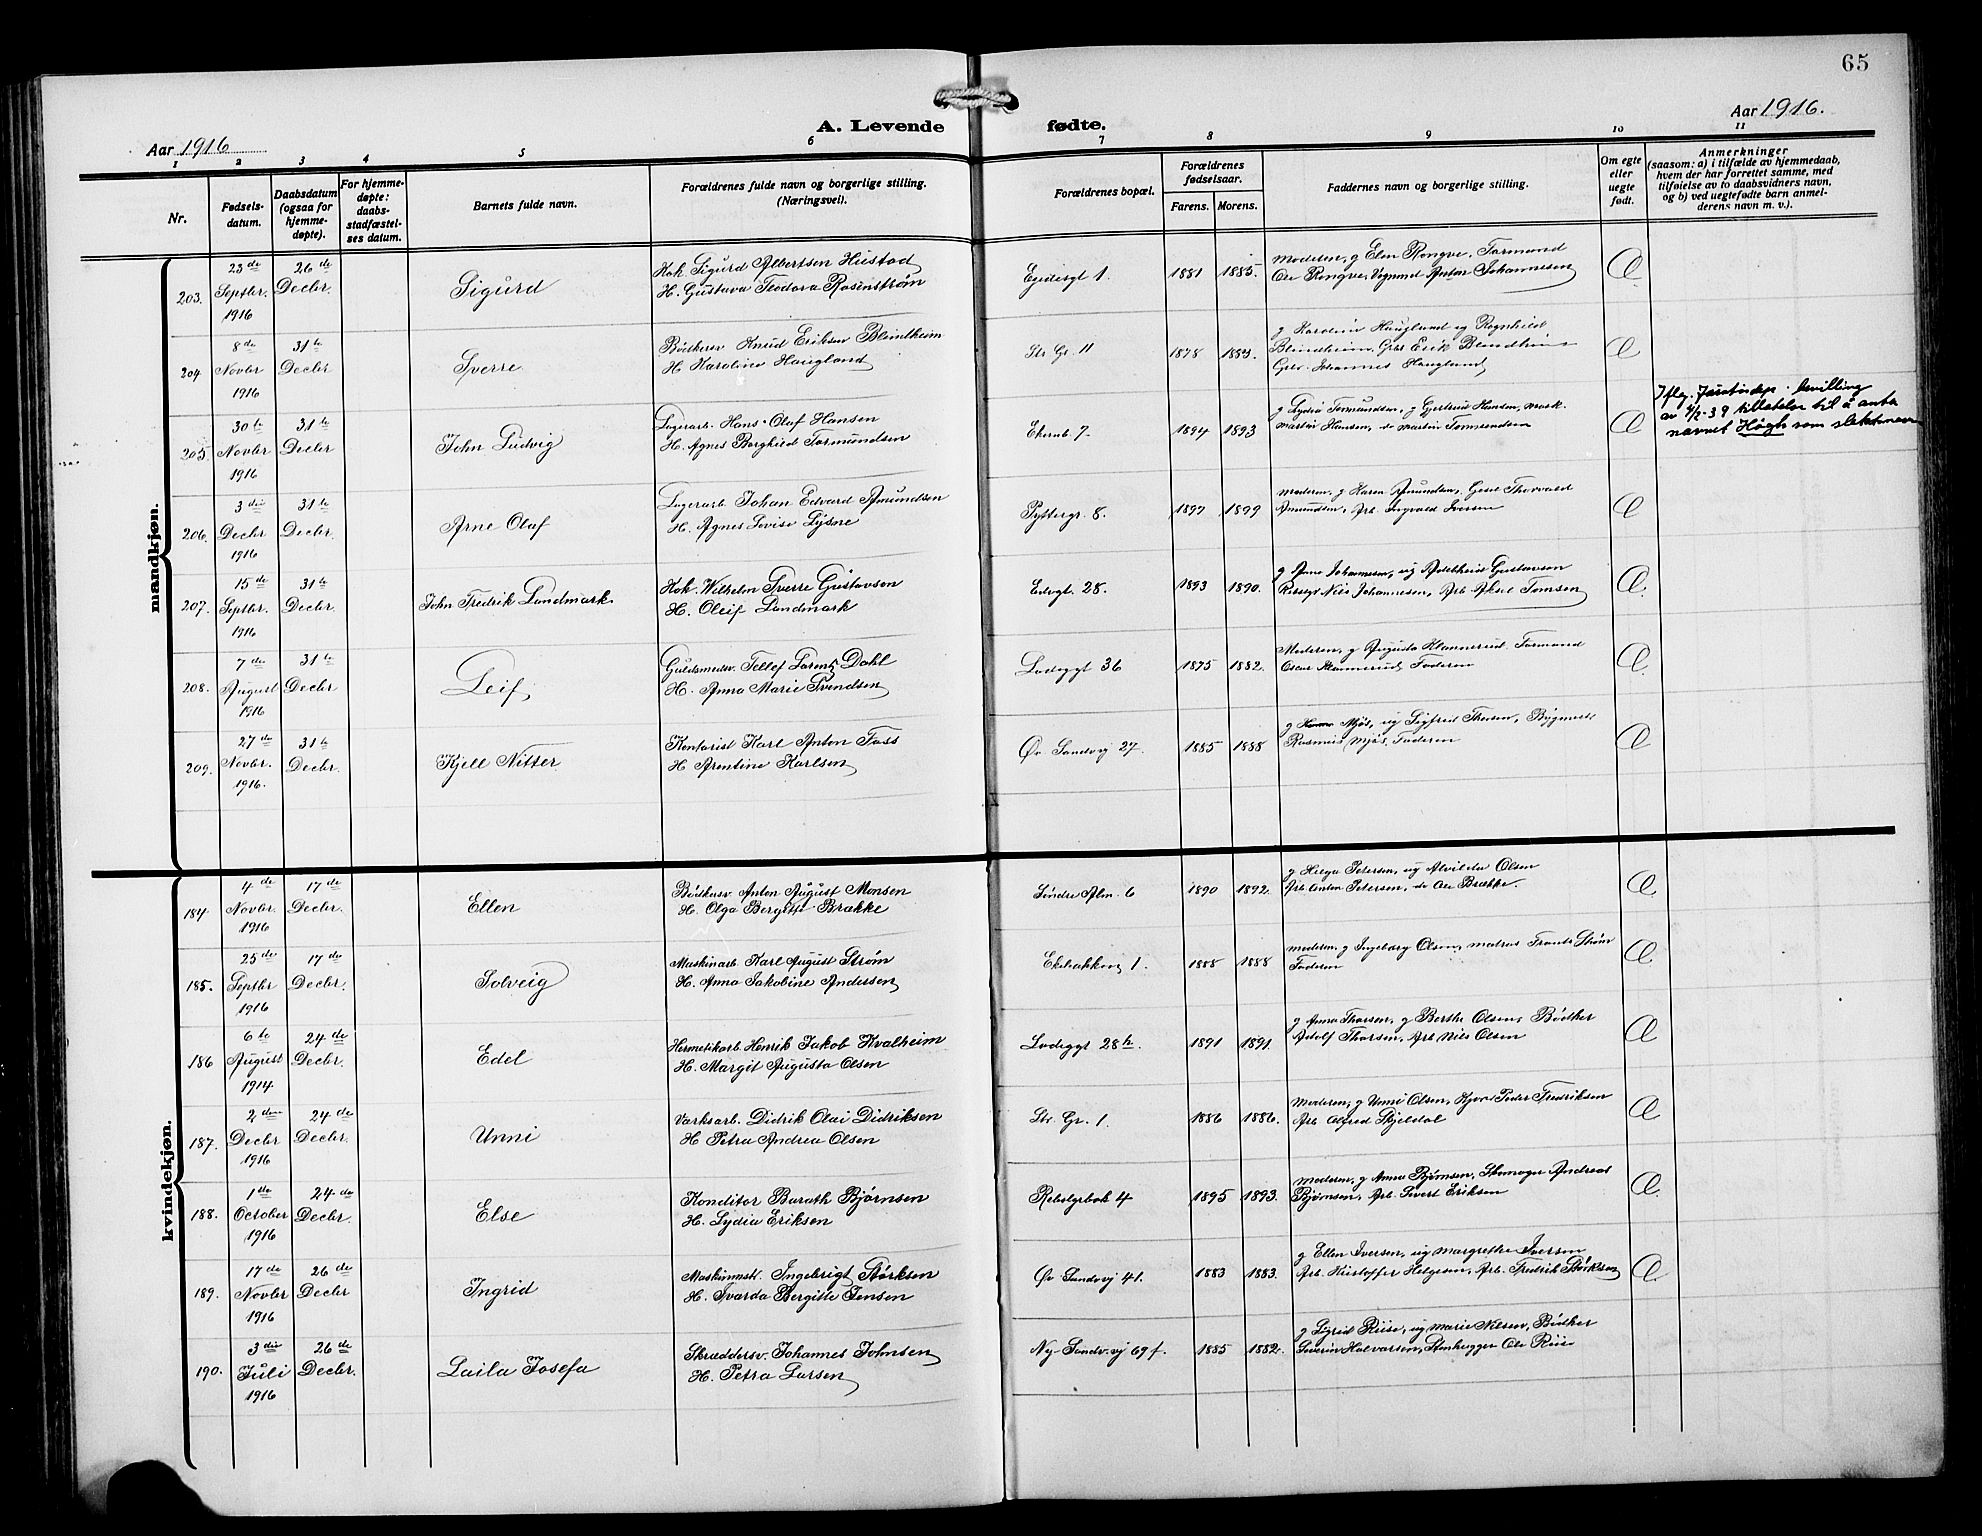 65
Aar 1916
A. Levende fødte.
Aar 1916.
1 2 3 4 5 6 7 8 9 10 11
Nr.
Fødsels-
datum.
Daabsdatum
(ogsaa for
hjemme-
døpte).
For hjemme-
døpte:
daabs-
stadfæstel-
ses datum.
Barnets fulde navn.
Forældrenes fulde navn og borgerlige stilling.
(Næringsvei).
Forældrenes bopæl.
Forældrenes
fødselsaar.
Farens. Morens.
Faddernes navn og borgerlige stilling.
Om egte
eller
uegte
født.
Anmerkninger
(saasom: a) i tilfælde av hjemmedaab,
hvem der har forrettet samme, med
tilføielse av to daabsvidners navn,
og b) ved uegtefødte barn anmel-
derens navn m. v.).
maandkjøn.
203. 23de Septbr. 1916 26de Decbr. Sigurd
Kok Sigurd Albertsen Hustad
H. Gustava Teodora Rosenstrøm
Egidesgt 1. 1881 1885.
Moderen, g Elen Rongve, Formand
Ole Rongve, Vognmd Anton Johannesen
E
204 8de Novbr 1916 31te Decbr. Sverre
Bödkersv Knud Eriksen Blindheim
H. Karoline Haugland
Str Gr. 11 1878 1884.
g Karoline Haugland ug Ragnhild
Blindheim, Grbr Erik Blindheim
Grbr. Johannes Haugland
E
205. 30te Novbr 1916 31te Decbr. John Ludvig
Lagerarb. Hans Olaf Hansen
H. Agnes Borghild Tormundsen
7. 1894 1893
g Lydia Tormundsen, g Gertrud Hansen, mask.
Martin Hansen, do Martin
E
Iflg. Justisdep. bevilling
av 4/2-39 tillatelse til å anta
navnet Högh som slektsnavn
206. 3die Decbr 1916 31te Decbr. Arne Olaf
Lagerarb Johan Edvard Amundsen
H. Agnes Lovise Lysne
Pyttergr. 8. 1897 1899
Moderen, g Karen Amundsen, Thorvald
Amundsen, Arb. Ingvald Iversen
E
207. 15de Septbr. 1916 31te Decbr. John Fredrik Landmark
Kok. Wilhelm Sverre Gustavson
H. Oleif Landmark
28. 1893 1890.
g Anna Johannesen, ug Adelheid Gustavson
Nils Johannesen, Arb Aksel Tomsen
E
208. 7de August 1916 31te Decbr Leif
Guldsmedsv. Tellef Lorentz Dahl
H. Anna Marie Svendsen
Ladeggt 36 1875 1882.
Moderen, g Augusta Hannerud, Formand
Oscar Hannerud, Faderen
E
209. 27de Novbr. 1916. 31te Decbr. Kjell Nitter
Kontorist Karl Anton Foss
H Arentine Karlsen
Øv Sandvvj 27. 1885 1888
g Hanna Mjøs, ug Sigfrid Thorsen, Bygmest.
Rasmus Mjøs, Faderen
E
kvindekjøn.
184. 4de Novbr. 1916 17de Decbr. Ellen
Bödkersv Anton August Monsen
H. Olga Bergitte Brække
Söndre Alm. 6 1890 1892.
g Helga Petersen, ug Alvilda Olsen
Arb Anton Petersen, do Ole Brække.
E
185. 25de Septbr 1916 17de Decbr. Solveig
Maskinarb. Karl August Strøm
H. Anna Jakobine Andersen
1. 1888 1888
Moderen, g Ingeborg Olsen, Matros Frants Strøm
Faderen
E
186 6te August 1914 24de Decbr. Edel
Hermetikarb Henrik Jakob Kvalheim
H. Margit Augusta Olsen
Ladeggt 28b. 1891 1891.
g Anna Thorsen, g Berthe Olsen, Bødker
Adolf Thorsen, Arb. Nils Olsen
E
187. 2den Decbr 1916 24de Decbr. Unni
Værksarb. Didrik Olai Didriksen
H. Petra Andrea Olsen
Str. Gr. 1. 1886 1886.
Moderen, g Unni Olsen, Peder Fredriksen
Arb Alfred Skjeldal
E
188. 1de October 1916 24de Decbr. Else
Konditor Barath Bjørnsen
H. Lydia Eriksen
4 1895 1893.
Moderen, g Anna Bjørnsen, Skomager Andreas
Bjørnsen, Arb. Sivert Eriksen
E
189. 17de Novbr 1916 26de Decbr Ingrid
Maskinmstr. Ingebrigt Størksen
H. Svarda Bergitte Jensen
Øv Sandvvj 41. 1883 1883.
g Ellen Iversen, ug Margrethe Iversen
Arb. Kristoffer Helgesen, Arb. Fredrik Størksen
E
190. 3die Juli 1916 26de Decbr. Laila Josefa
Skræddersv. Johannes Johnsen
H. Petra Larsen
Ny-Sandvvj 69f. 1885 1882.
g Sigrid Riise, ug Marie Nilsen, Bödker
Severin Halvorsen, Stenhugger Ole Riise